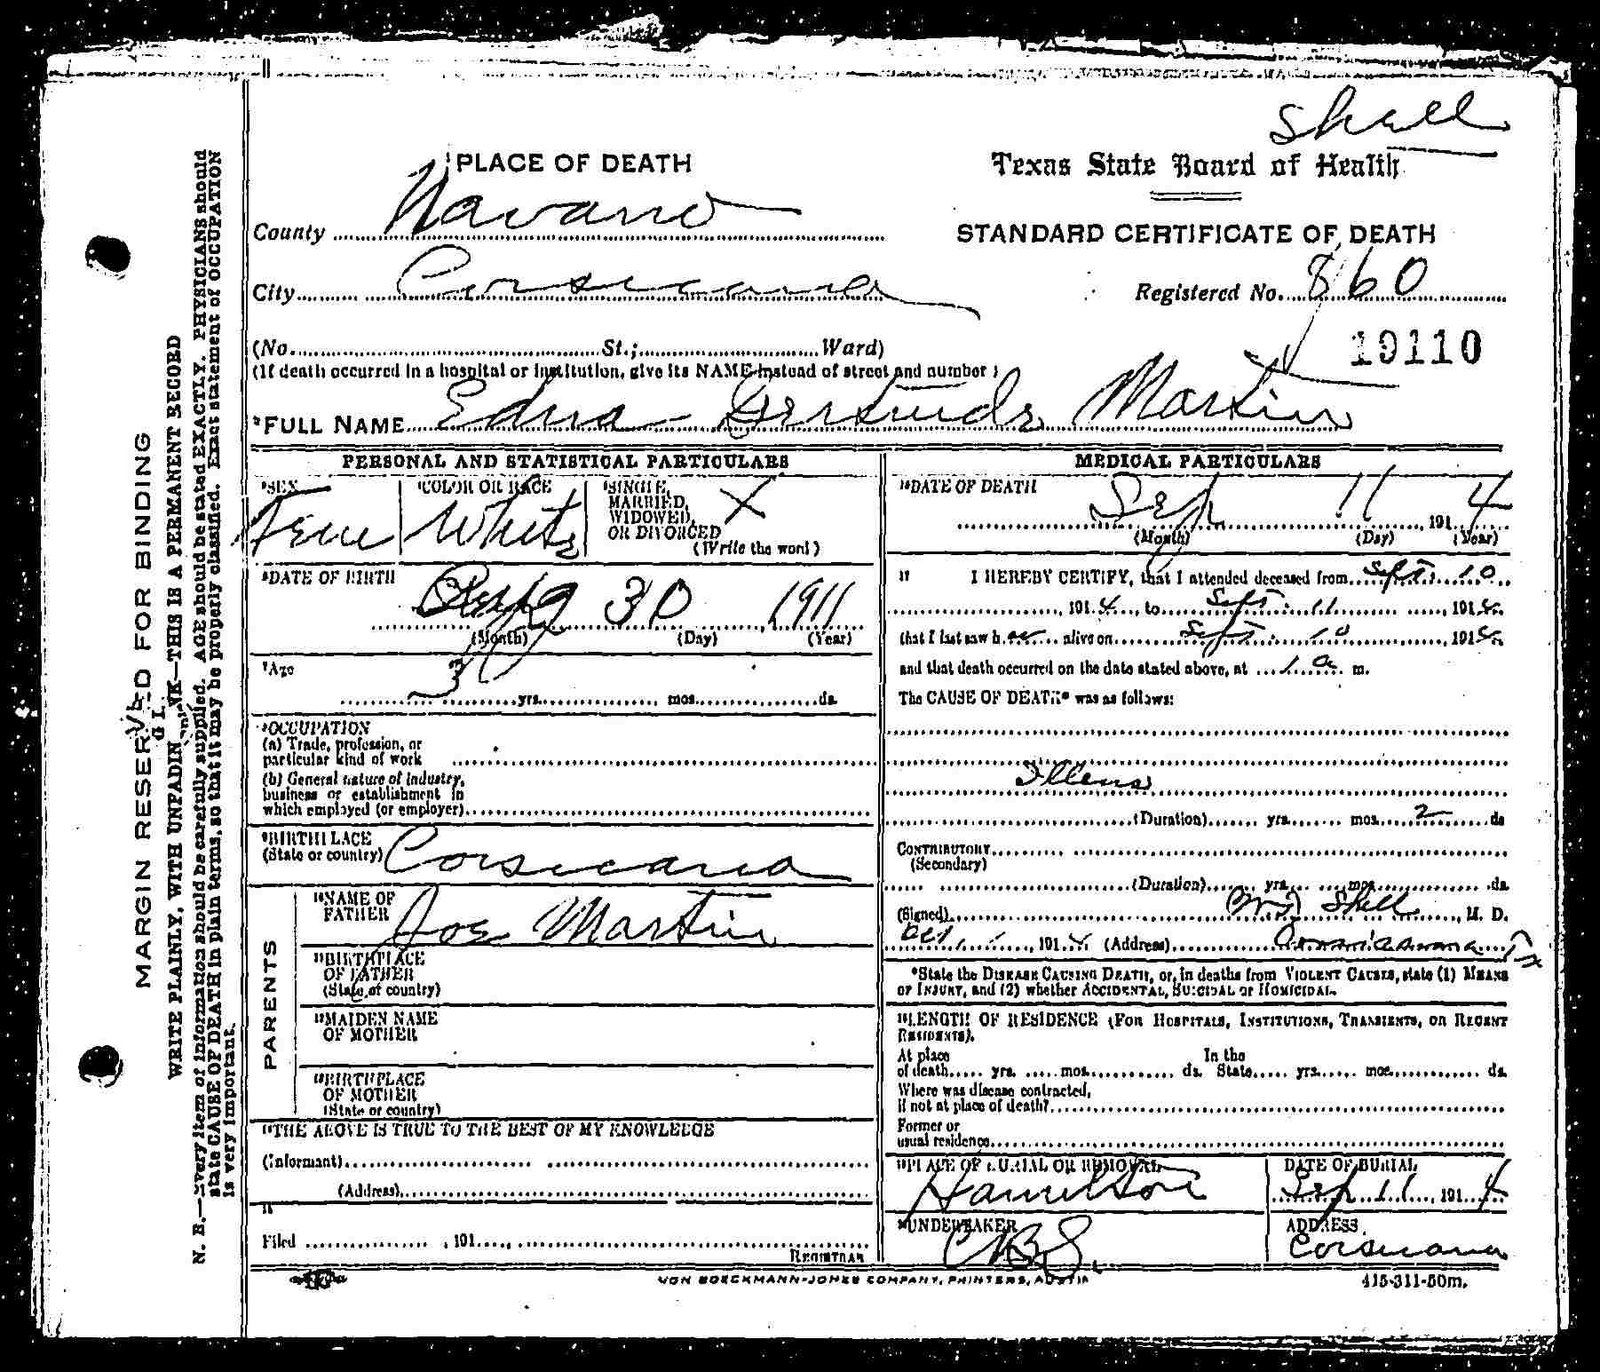 Shell
PLACE OF DEATH
Texas State Board of Health
County Navarro
STANDARD CERTIFICATE OF DEATH
City Corsicana
Registered No. 860
(No. St.; Ward)
19110
(If death occurred in a hospital or institution, give its NAME instead of street and number)
²FULL NAME Edna Gertrude Martin
PERSONAL AND STATISTICAL PARTICULARS
³SEX
Fem
⁴COLOR OR RACE
White
⁵SINGLE,
MARRIED,
WIDOWED,
OR DIVORCED
(Write the word)
X
⁶DATE OF BIRTH
30 1911
(Month) (Day) (Year)
⁷Age
3 yrs. mos. ds.
⁸OCCUPATION
(a) Trade, profession, or
particular kind of work
(b) General nature of industry,
business or establishment in
which employed (or employer)
⁹BIRTHPLACE
(State or country) Corsicana
PARENTS
¹⁰NAME OF
FATHER Joe Martin
¹¹BIRTHPLACE
OF FATHER
(State or country)
¹²MAIDEN NAME
OF MOTHER
¹³BIRTHPLACE
OF MOTHER
(State or country)
¹⁴THE ABOVE IS TRUE TO THE BEST OF MY KNOWLEDGE
(Informant)
(Address)
15
Filed , 191
REGISTRAR
MEDICAL PARTICULARS
¹⁶DATE OF DEATH
Sep 11 1914
(Month) (Day) (Year)
17 I HEREBY CERTIFY, that I attended deceased from Sept. 10
, 1914, to Sept. 11 , 1914
that I last saw her alive on Sept. 10 1914
and that death occurred on the date stated above, at 1 a m.
The CAUSE OF DEATH* was as follows:
(Duration) yrs. mos. 2 ds
CONTRIBUTORY
(Secondary)
(Duration) yrs. mos. ds.
(Signed) Shell , M. D.
Oct 1 , 1914 (Address) Tx
*State the DISEASE CAUSING DEATH, or, in deaths from VIOLENT CAUSES, state (1) MEANS
OF INJURY, and (2) whether ACCIDENTAL, SUICIDAL or HOMICIDAL.
¹⁸LENGTH OF RESIDENCE (FOR HOSPITALS, INSTITUTIONS, TRANSIENTS, OR RECENT
RESIDENTS).
At place In the
of death yrs. mos. ds. State yrs. mos. ds.
Where was disease contracted,
if not at place of death?
Former or
usual residence
¹⁹PLACE OF BURIAL OR REMOVAL
Hamilton
DATE OF BURIAL
Sep 11, 1914
²⁰UNDERTAKER
ADDRESS
Corsicana
VON BOECKMANN-JONES COMPANY, PRINTERS, AUSTIN
415-311-50m.
MARGIN RESERVED FOR BINDING
WRITE PLAINLY, WITH UNFADING INK—THIS IS A PERMANENT RECORD
N. B.—Every item of information should be carefully supplied. AGE should be stated EXACTLY. PHYSICIANS should
state CAUSE OF DEATH in plain terms, so that it may be properly classified. Exact statement of OCCUPATION
is very important.